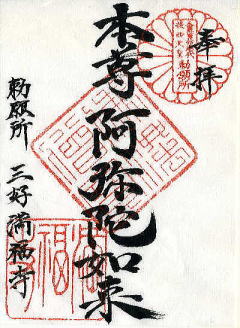 奉拝
本尊 阿弥陀如来
勅願所 三好 満福寺